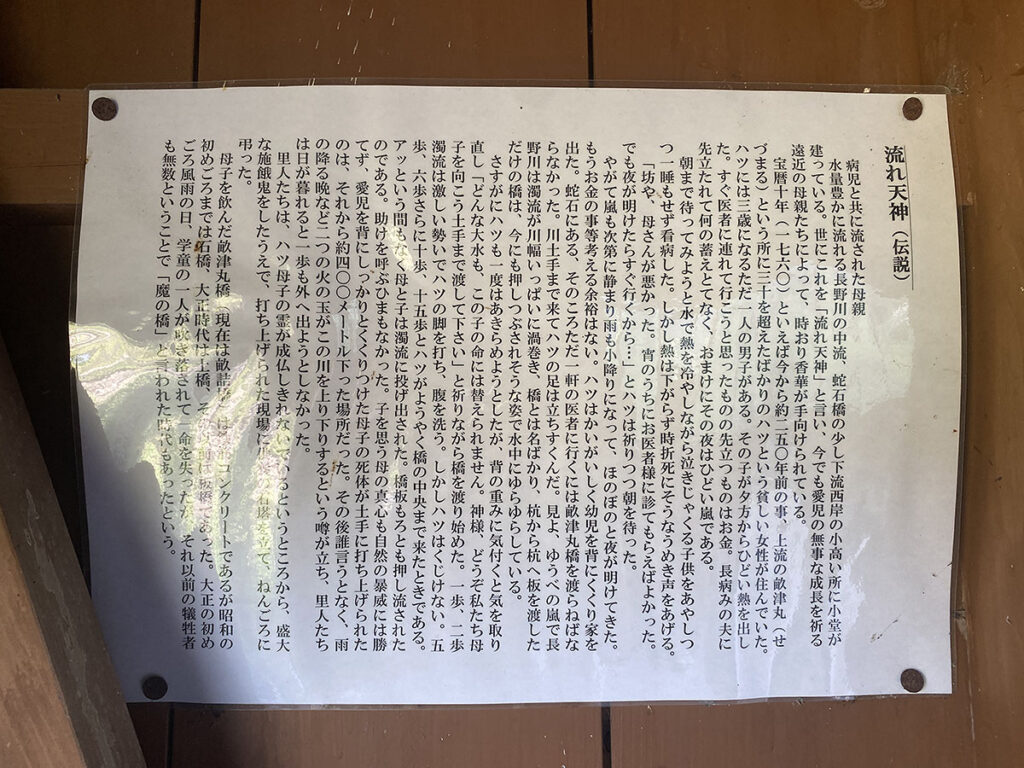 流れ天神（伝説）
病児と共に流された母親
水量豊かに流れる長野川の中流、蛇石橋の少し下流西岸の小高い所に小堂が
建っている。世にこれを「流れ天神」と言い、今でも愛児の無事な成長を祈る
遠近の母親たちによって、時おり香華が手向けられている。
宝暦十年（一七六〇）といえば今から約二五〇年前の事、上流の畝津丸（せ
づまる）という所に三十を超えたばかりのハツという貧しい女性が住んでいた。
ハツには三歳になるただ一人の男子がある。その子が夕方からひどい熱を出し
た。すぐ医者に連れて行こうと思ったものの先立つものはお金。長病みの夫に
先立たれて何の蓄えとてなく、おまけにその夜はひどい嵐である。
朝まで待ってみようと水で熱を冷やしながら泣きじゃくる子供をあやしつ
つ一睡もせず看病した。しかし熱は下がらず時折死にそうなうめき声をあげる。
「坊や、母さんが悪かった。宵のうちにお医者様に診てもらえばよかった。
でも夜が明けたらすぐ行くから…」とハツは祈りつつ朝を待った。
やがて嵐も次第に静まり雨も小降りになって、ほのぼのと夜が明けてきた。
もうお金の事等考える余裕はない。ハツはかいがいしく幼児を背にくくり家を
出た。蛇石にある、そのころただ一軒の医者に行くには畝津丸橋を渡らねばな
らなかった。川土手まで来てハツの足は立ちすくんだ。見よ、ゆうべの嵐で長
野川は濁流が川幅いっぱいに渦巻き、橋とは名ばかり、杭から杭へ板を渡した
だけの橋は、今にも押しつぶされそうな姿で水中にゆらゆらしている。
さすがにハツも一度はあきらめようとしたが、背の重みに気付くと気を取り
直し「どんな大水も、この子の命には替えられません。神様、どうぞ私たち母
子を向こう土手まで渡して下さい」と祈りながら橋を渡り始めた。一歩、二歩
濁流は激しい勢いでハツの脚を打ち、腹を洗う。しかしハツはくじけない。五
歩、六歩さらに十歩、十五歩とハツがようやく橋の中央まで来たときである。
アッという間もなく母と子は濁流に投げ出された。橋板もろとも押し流された
のである。助けを呼ぶひまもなかった。子を思う母の真心も自然の暴威には勝
てず、愛児を背にしっかりとくくりつけた母子の死体が土手に打ち上げられた
のは、それから約四〇〇メートル下った場所だった。その後誰言うとなく、雨
の降る晩など二つの火の玉がこの川を上り下りするという噂が立ち、里人たち
は日が暮れると一歩も外へ出ようとしなかった。
里人たちは、ハツ母子の霊が成仏しきれないでいるというところから、盛大
な施餓鬼をしたうえで、打ち上げられた現場に の石塔を立て、ねんごろに
弔った。
母子を飲んだ畝津丸橋、現在は畝詰 コンクリートであるが昭和の
初めごろまでは石橋、大正時代は土橋、その以前は板橋であった。大正の初め
ごろ風雨の日、学童の一人が吹き落されて一命を失ったが、それ以前の犠牲者
も無数ということで「魔の橋」と言われた時代もあったという。